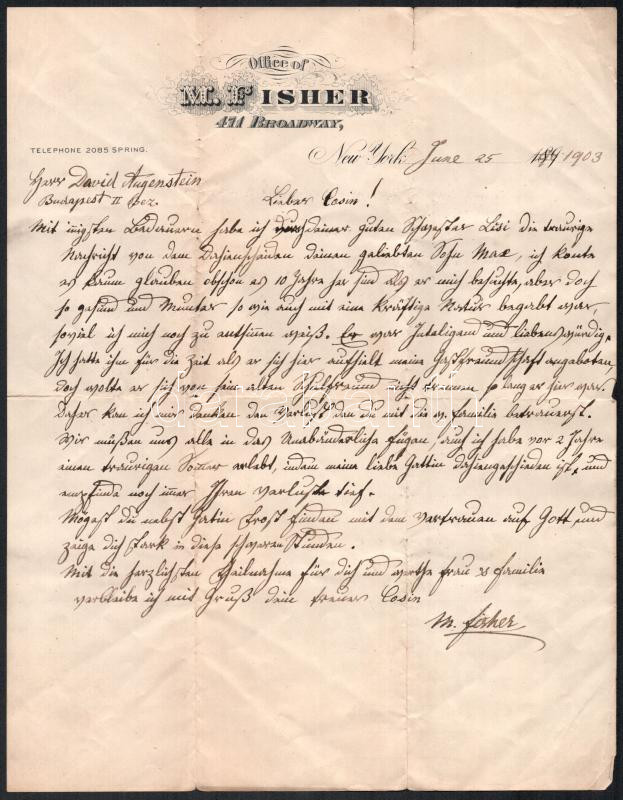 Office of
M. FISHER
471 BROADWAY,
TELEPHONE 2085 SPRING.
New York June 25 189 1903
Herr David Augenstein
Budapest II Bez.
Lieber Cosin!
Mit innigsten Bedauern habe ich durch deiner guten Schwester Lisi die traurige
Nachricht von dem Dahinscheiden deinen geliebten Sohn Max, ich konte
es kaum glauben obschon es 10 Jahre her sind als er mich besuchte, aber doch
so gesund und Munter so wie auch mit eine kräftige Natur begabt war,
soviel ich mich noch zu entsinnen weiß. Er war Inteligend und liebenswürdig.
Ich hatte ihm für die Zeit als er sich hier aufhielt meine Gastfreundschaft angeboten,
doch wolte er sich von sein alten Schulfreund nicht trennen so lang er hier war.
Daher kan ich mir denken den Verlust den du mit die w. Familie betrauerst.
Wir müßen uns alle in das Unabänderliche fügen, auch ich habe vor 2 Jahre
einen traurigen Somer erlebt, indem meine liebe Gattin dahingeschieden ist, und
empfinde noch imer Ihren verluste tief.
Mögest du nebst Gatin Trost finden mit dem vertrauen auf Gott und
zeige dich stark in diese schweren Stunden.
Mit die herzlichsten Theilnahme für dich und werthe Frau & Familie
verbleibe ich mit Gruß dein treuer Cosin
M. Fisher